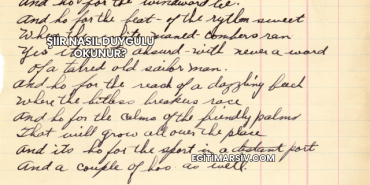 And ho for the windward lie.
And ho for the feat - of the rythm sweet
ŞİİR NASIL DUYGULU
OKUNUR?
Yes absurd - with never a word
of a tarred old sailor man.
And ho for the reach of a dazzling beach
Where the listless breakers race
And ho for the calms of the friendly palms
That will grow all over the place
And its ho for the sport in a distant port
And a couple of hos as well.
EGITIMARSIV.COM